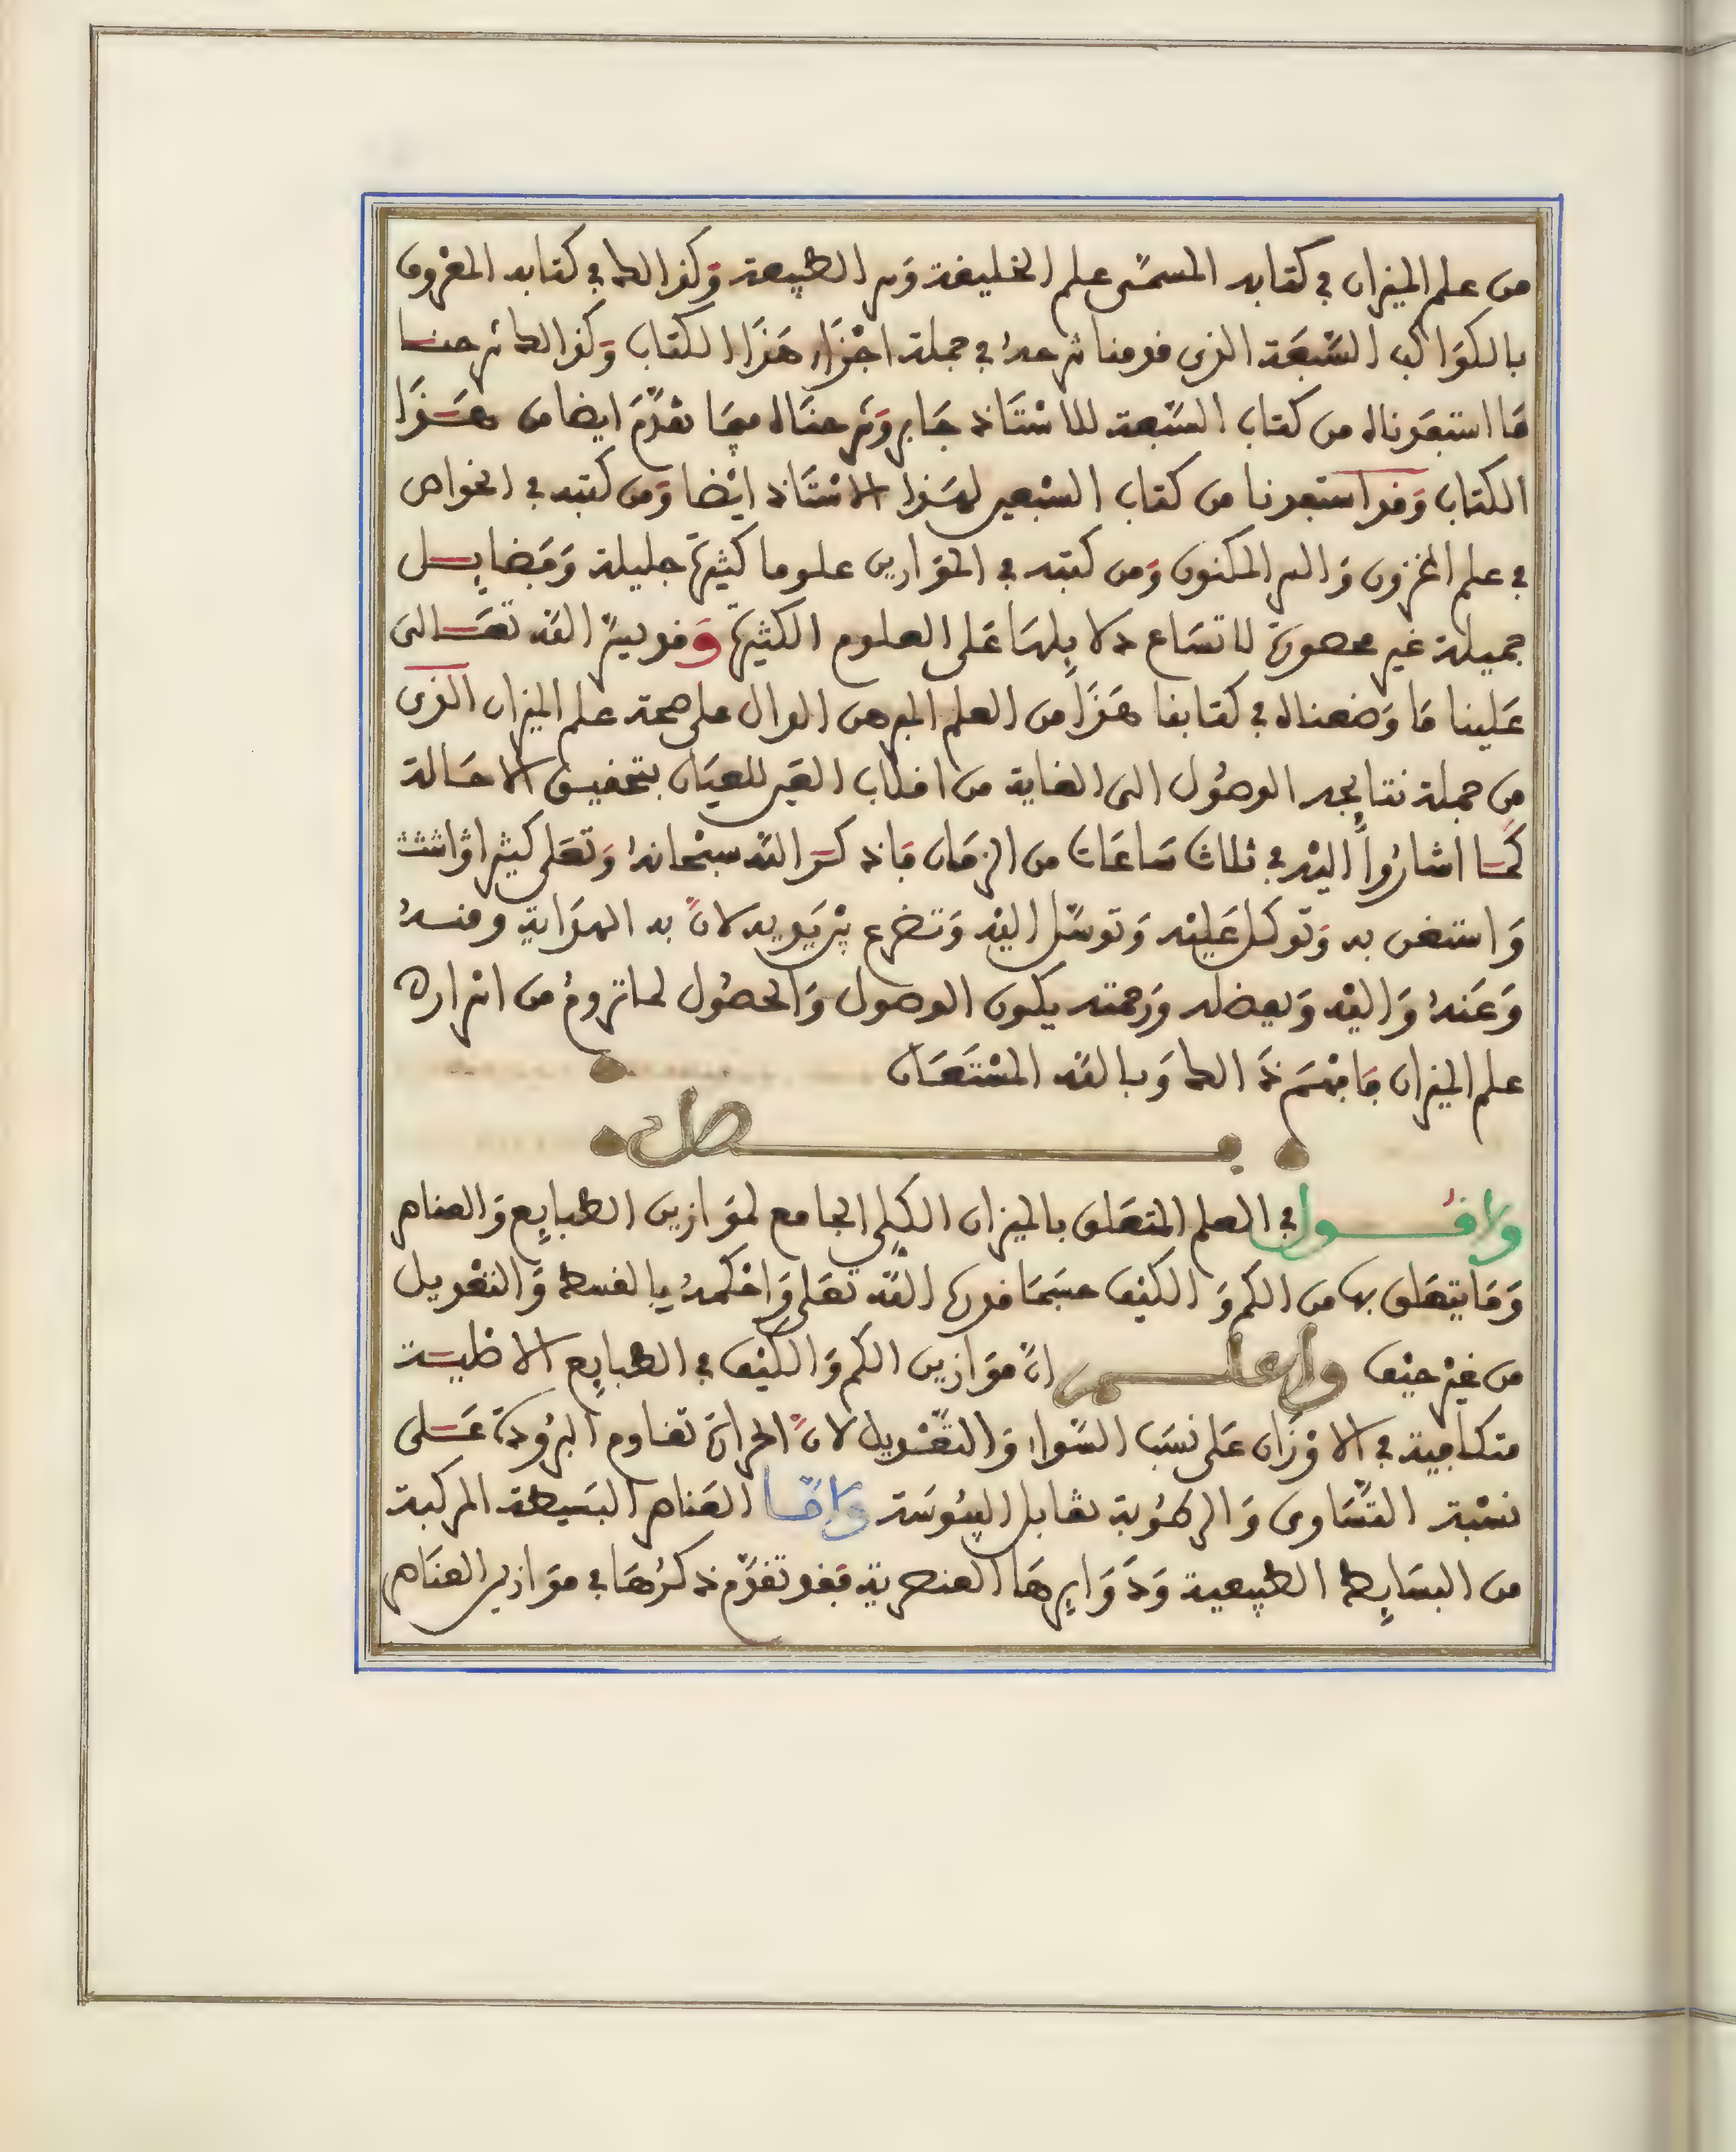 من علم الميزان في كتابه المسمى علم الخليفة وسر الطبيعة وكذالك في كتابه المعروف
بالكواكب السبعة الذي قدمنا شرحه في جملة اجزاء هذا الكتاب وكذالك شرحنا
ما استفدناه من كتاب السبعة للاستاذ جابر وشرحناه فيما تقدم ايضا من هذا
الكتاب وقد استفدنا من كتاب السبعين لهذا الاستاذ ايضا ومن كتبه في الخواص
في علم المخزون والسر المكنون ومن كتبه في الموازين علوما كثيرة جليلة وفضايل
جميلة غير محصورة لاتساع دلايلها على العلوم الكثيرة وقد يسر الله تعالى
علينا ما وضعناه في كتابنا هذا من العلم المبرهن الدال على صحة علم الميزان الذي
من جملة نتايجه الوصول الى الغاية من اقلاب العين للعيان بتحقيق الاحالة
كما اشاروا اليه في ثلاث ساعات من الزمان فاذكر الله سبحانه وتعلى كثيرا واثبت
واستعن به وتوكل عليه وتوسل اليه وتضرع بين يديه لان به الهداية ومنه
وعنه واليه وبفضله ورحمته يكون الوصول والحصول لما تروم من اسراره
علم الميزان فافهم ذالك وبالله المستعان
فصل
واقول في العلم المتعلق بالميزان الكلي الجامع لموازين الطبايع والعناصر
وما يتعلق بها من الكم والكيف حسبما قدرها الله تعلى واحكمه بالقسط والتعديل
من غير حيف واعلم ان موازين الكم والكيف في الطبايع الاصلية
متكافية في الاوزان على نسب السواء والتعديل لان الحرارة تقاوم البرودة على
نسبة التساوي والرطوبة تقابل اليبوسة واما العناصر البسيطة المركبة
من البسايط الطبيعية ودوايرها العنصرية فقد تقدم ذكرها في موازين العناصر